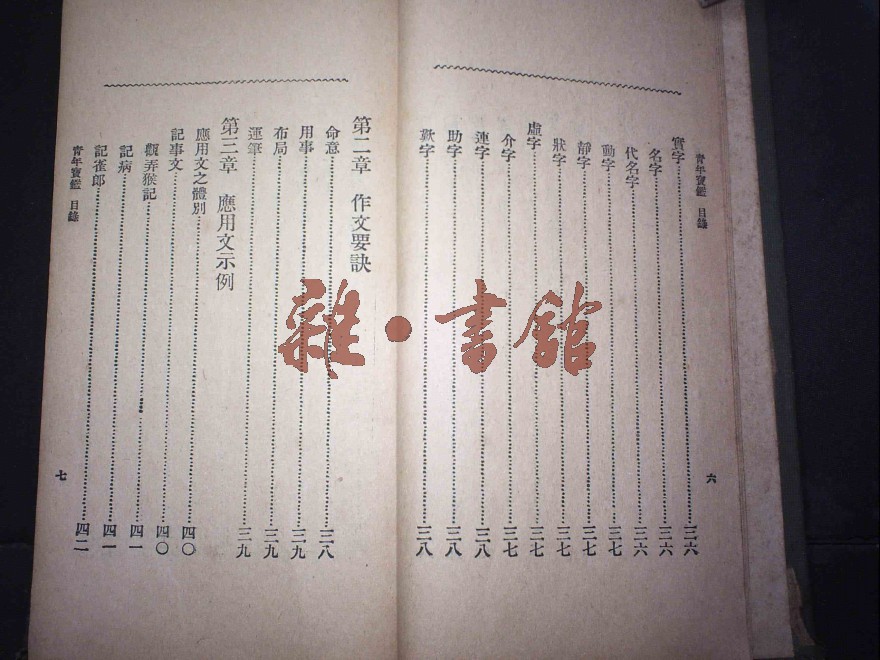 青年寶鑑 目錄
實字 三六
名字 三六
代名字 三六
動字 三七
靜字 三七
狀字 三七
虛字 三七
介字 三七
連字 三八
助字 三八
歎字 三八
六
第二章 作文要訣
命意 三八
用事 三九
布局 三九
運筆 三九
第三章 應用文示例
應用文之體別 四〇
記事文 四〇
觀弄猴記 四一
記病 四一
記雀郎 四二
青年寶鑑 目錄
七
雜·書館